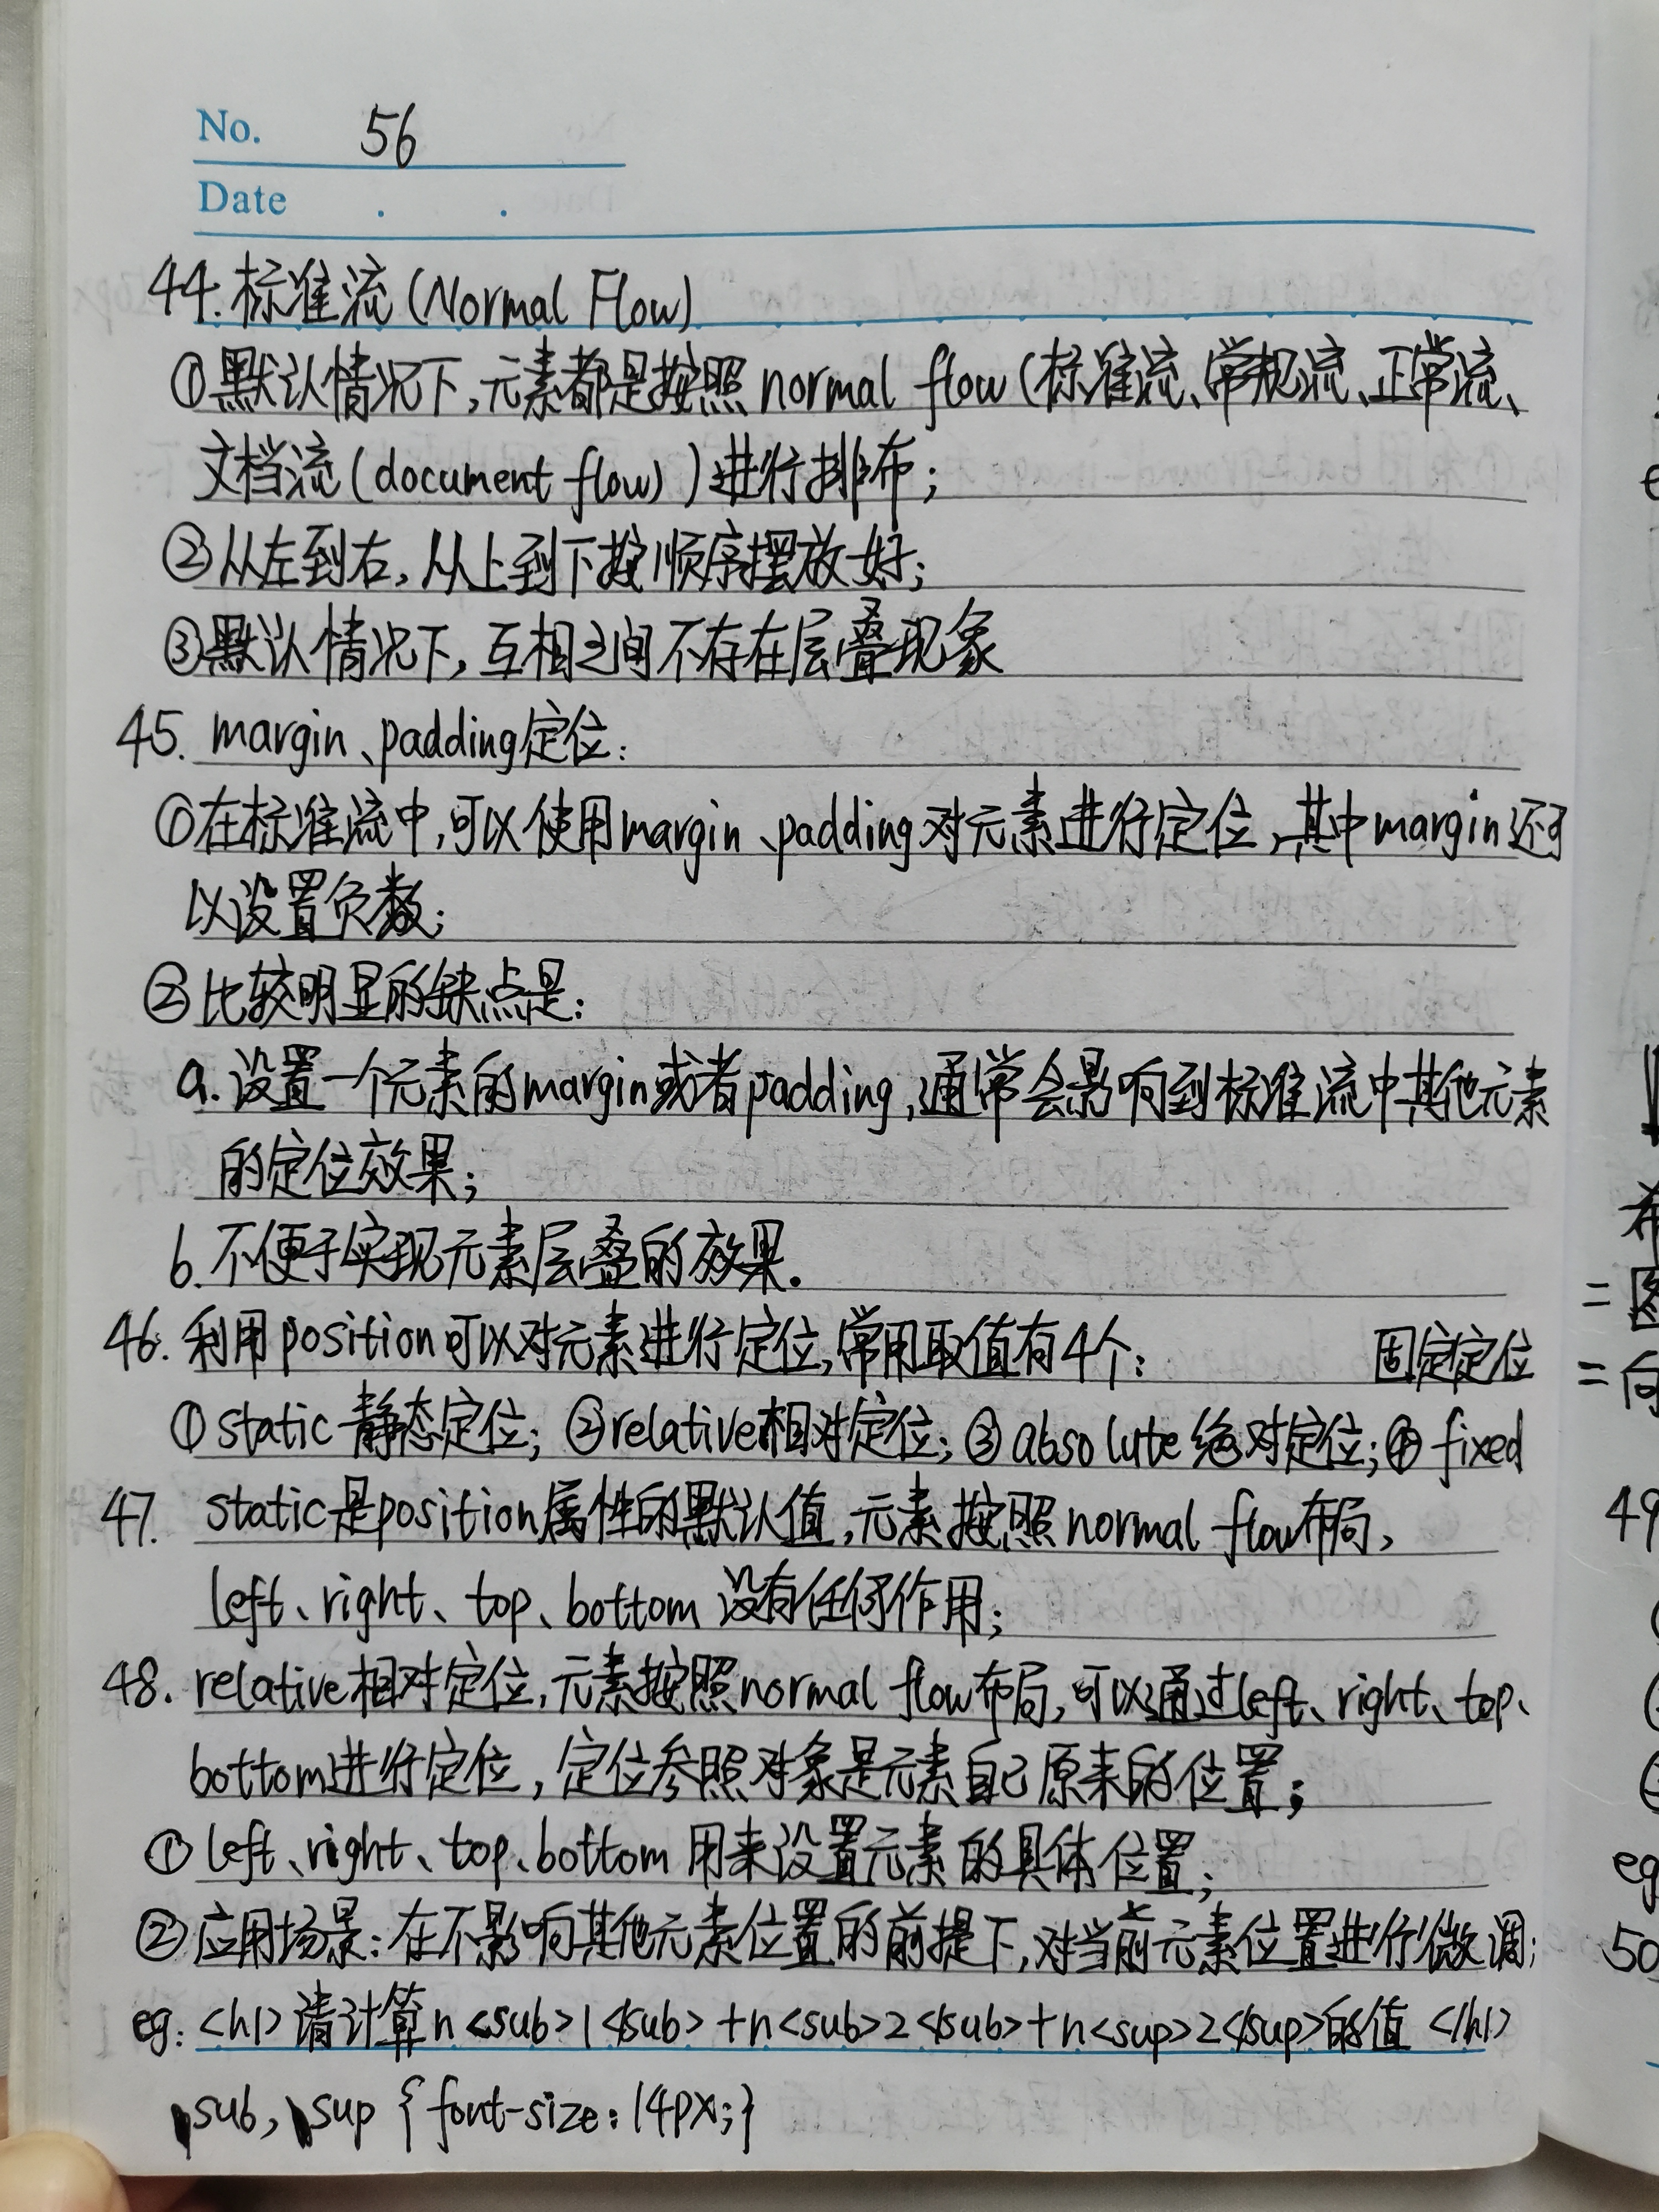 No. 56
Date . .
44. 标准流(Normal Flow)
①默认情况下,元素都是按照normal flow(标准流、常规流、正常流、
文档流(document flow))进行排布;
②从左到右,从上到下按顺序摆放好;
③默认情况下,互相之间不存在层叠现象
45. margin、padding定位:
①在标准流中,可以使用margin、padding对元素进行定位,其中margin还可
以设置负数;
②比较明显的缺点是:
a. 设置一个元素的margin或者padding,通常会影响到标准流中其他元素
的定位效果;
b. 不便于实现元素层叠的效果.
46. 利用position可以对元素进行定位,常用取值有4个: 固定定位
①static 静态定位; ②relative相对定位; ③absolute绝对定位; ④fixed
47. static是position属性的默认值,元素按照normal flow布局,
left、right、top、bottom 没有任何作用;
48. relative相对定位,元素按照normal flow布局,可以通过left、right、top、
bottom进行定位,定位参照对象是元素自己原来的位置;
①left、right、top、bottom 用来设置元素的具体位置;
②应用场景:在不影响其他元素位置的前提下,对当前元素位置进行微调;
eg: <h1>请计算n<sub>1</sub>+n<sub>2</sub>+n<sup>2</sup>的值</h1>
sub, sup {font-size:14px;}
=图
=向
49
eg
50